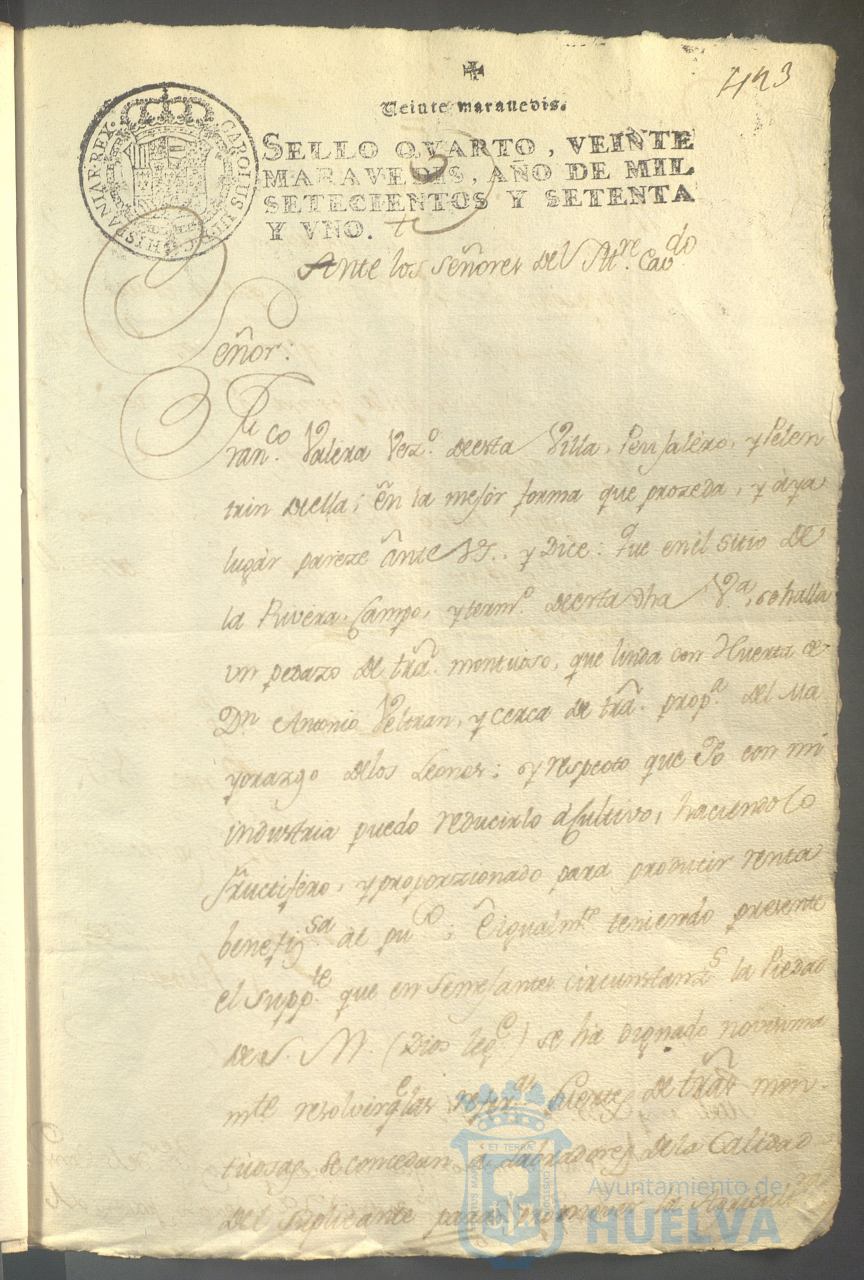 423
Veinte maravedis.
SELLO QVARTO, VEINTE
MARAVEDIS, AÑO DE MIL
SETECIENTOS Y SETENTA
Y VNO.
CAROLUS III D.G. HISPANIAR. REX.
Ante los señores del Iltre. Cavdo
Señor:
Franco. Valera Vezo. desta Villa, Pemjalero, y Pelen
trin de ella; en la mejor forma que prozeda, y aya
lugar pareze ante VS. y Dice: Que en el sitio de
la Rivera, Campo, y termo. de esta dha Va, se halla
un pedazo de tra. montuoso, que linda con Huerta de
Dn Antonio Veltran, y cerca de tra. propa. del Ma
yorazgo de los Leones; y respecto que Yo con mi
industria puedo reducirlo a Cultivo, haciendolo
fructifero, y proporzionado para producir renta
benefizsa al puco; E igualmte teniendo presente
el suppte que en semejantes circunstanzs la Piedad
de S. M. (Dios lege) se ha dignado novisima
mte resolver qe las suertes de tras mon-
tuosas, se concedan a Labradores de la Calidad
del Suplicante para promover la
ET TERRAE
Ayuntamiento de
HUELVA